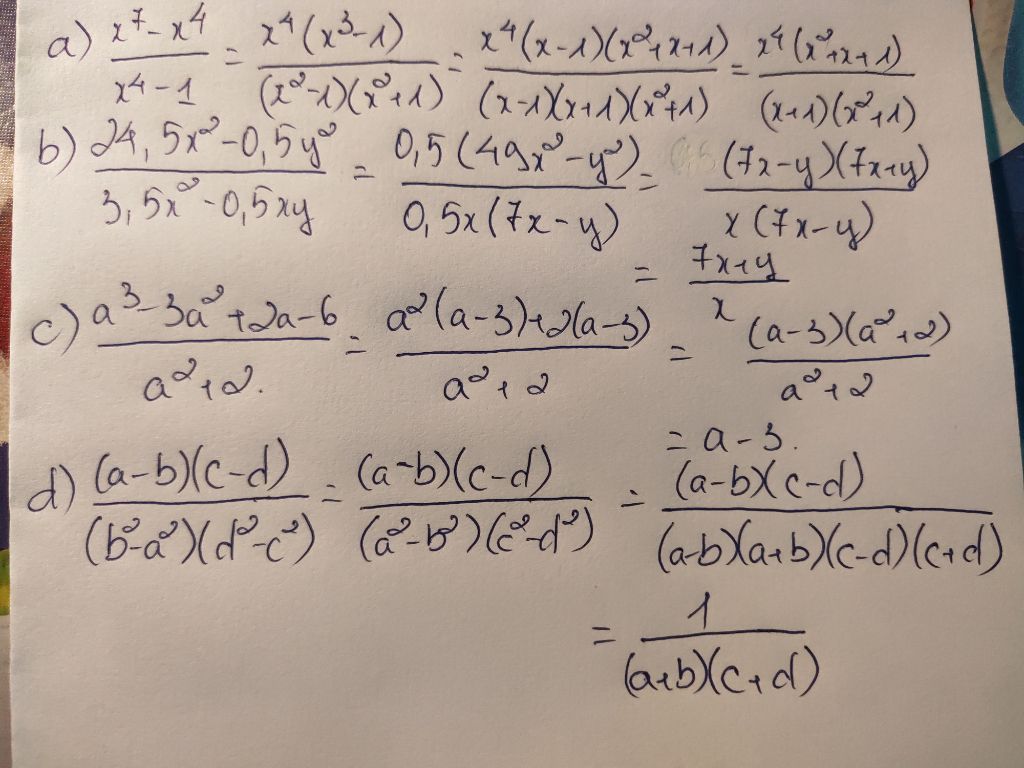 a) (x⁷-x⁴)/(x⁴-1) = x⁴(x³-1)/((x²-1)(x²+1)) = x⁴(x-1)(x²+x+1)/((x-1)(x+1)(x²+1)) = x⁴(x²+x+1)/((x+1)(x²+1))
b) (24,5x²-0,5y²)/(3,5x²-0,5xy) = 0,5(49x²-y²)/(0,5x(7x-y)) = (7x-y)(7x+y)/(x(7x-y))
= (7x+y)/x
c) (a³-3a²+2a-6)/(a²+2.) = (a²(a-3)+2(a-3))/(a²+2) = (a-3)(a²+2)/(a²+2)
= a-3.
d) (a-b)(c-d)/((b²-a²)(d²-c²)) = (a-b)(c-d)/((a²-b²)(c²-d²)) = (a-b)(c-d)/((a-b)(a+b)(c-d)(c+d))
= 1/((a+b)(c+d))